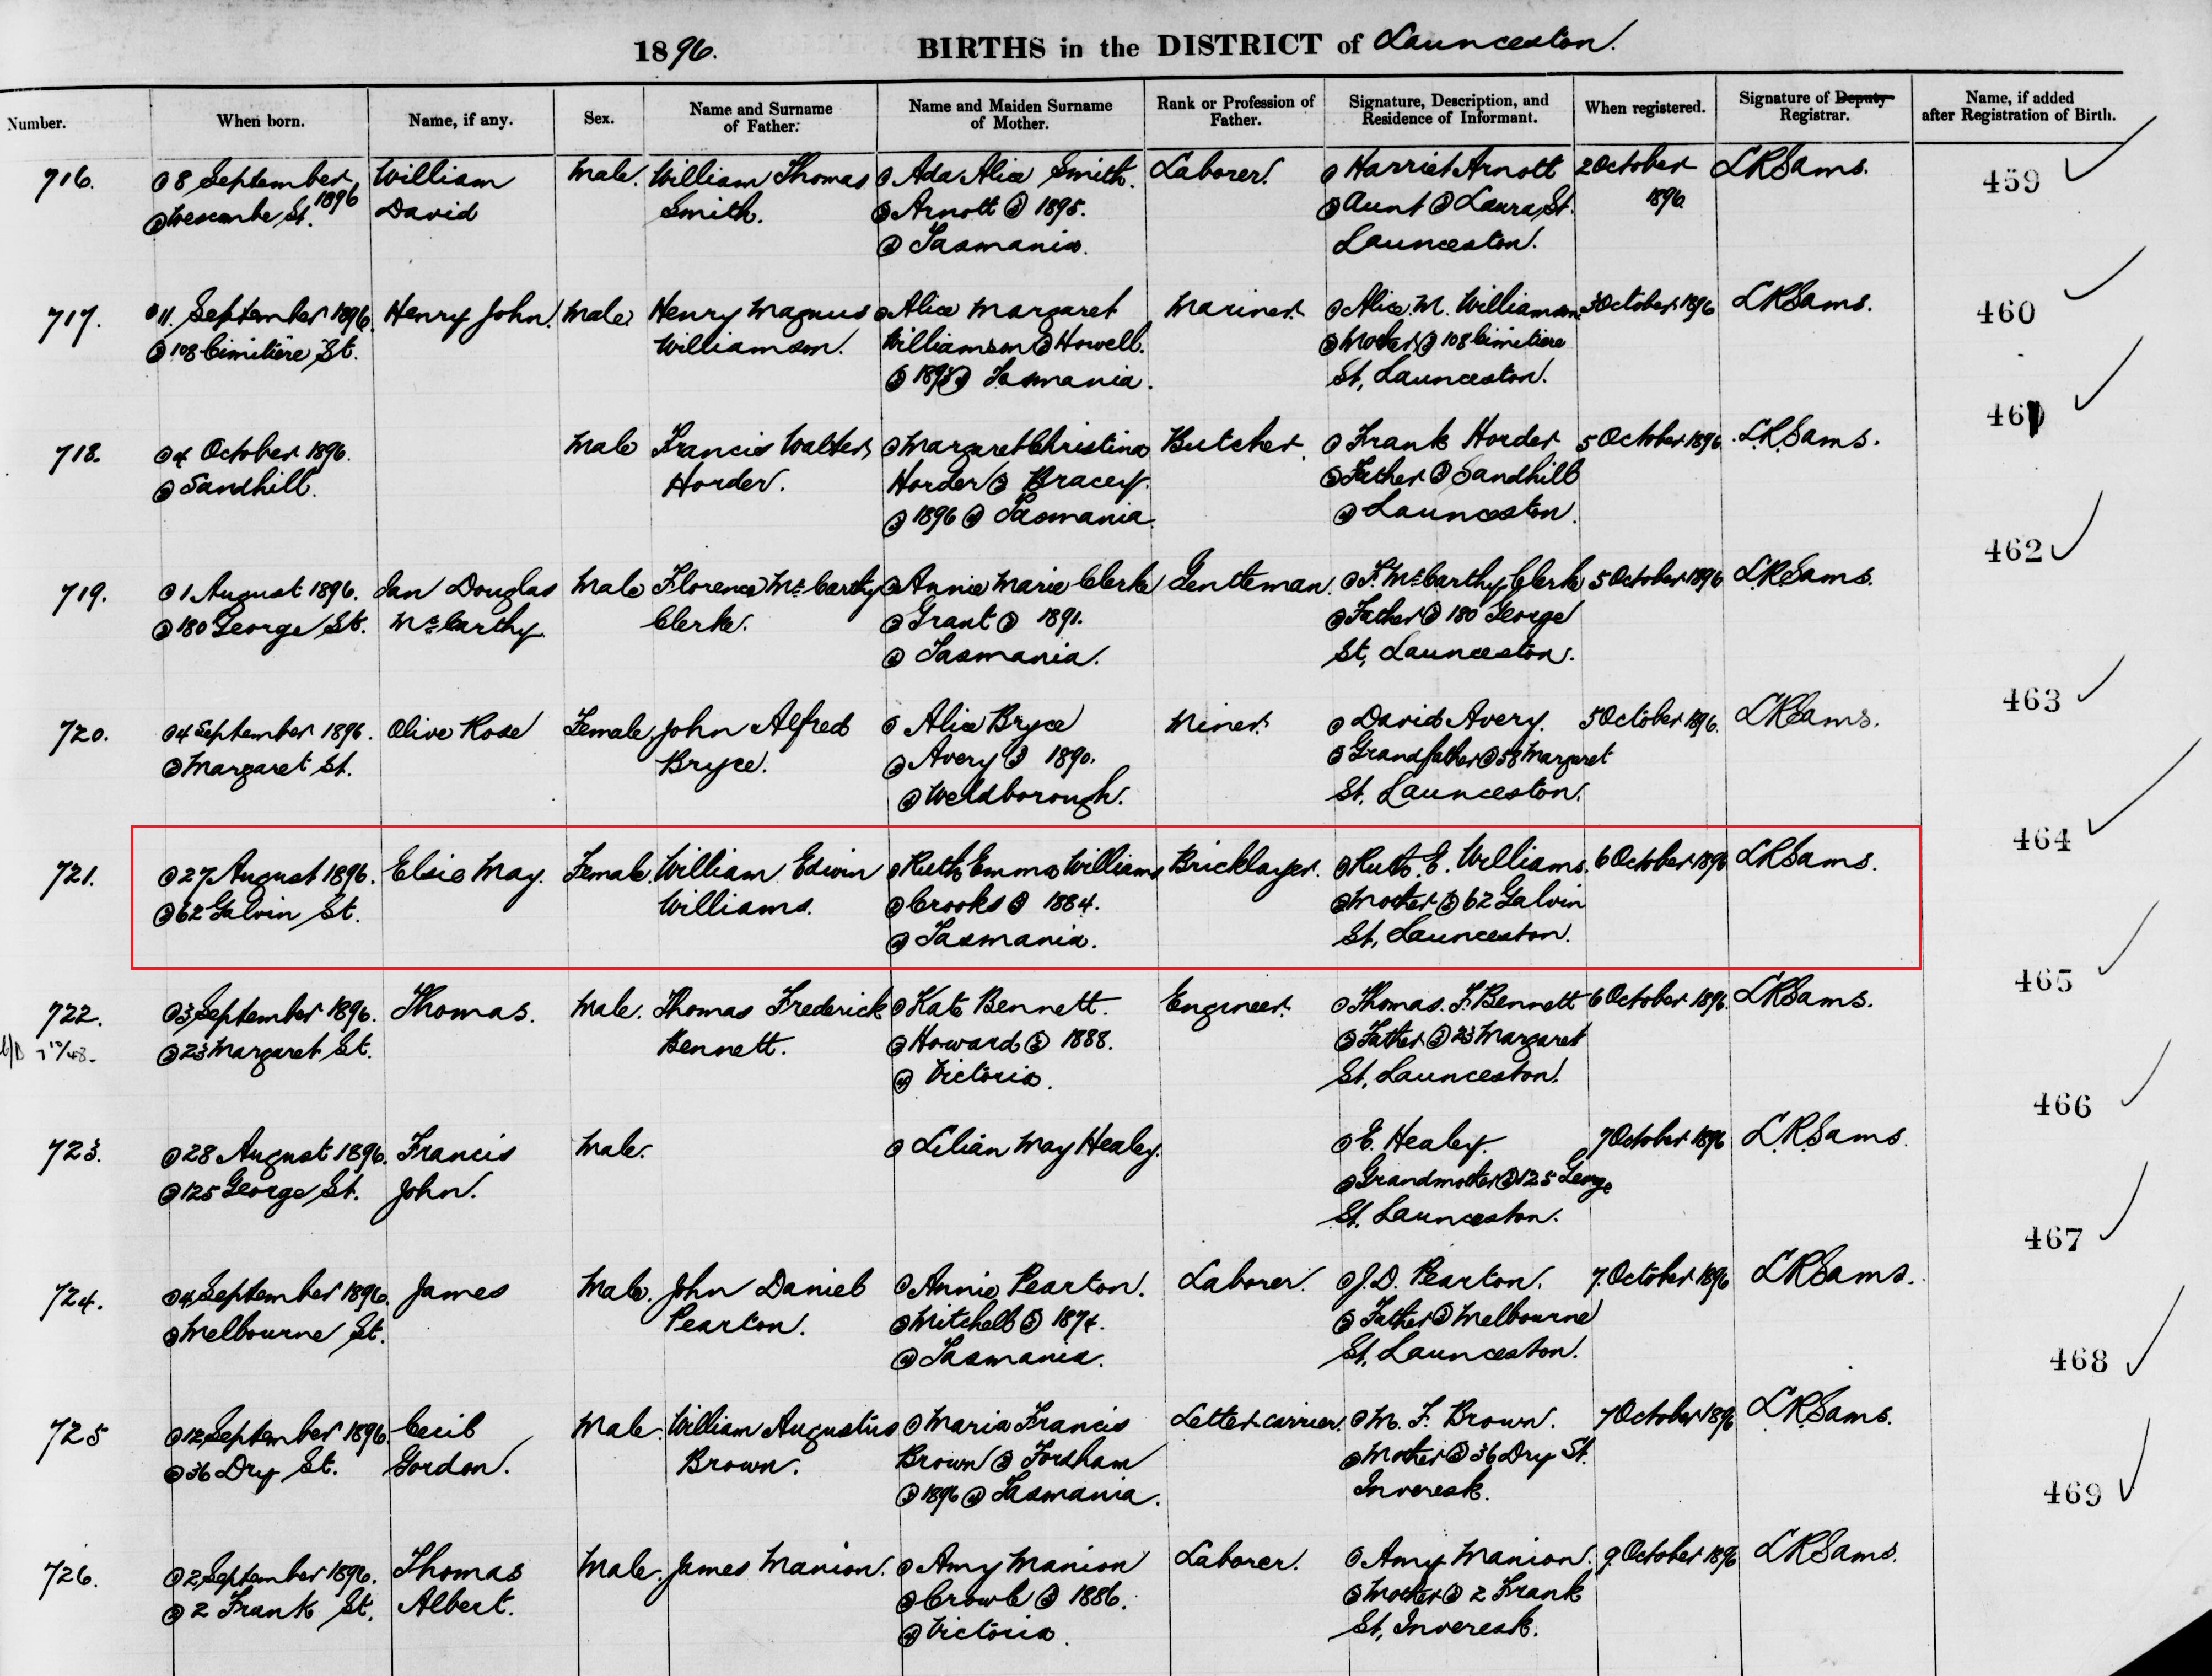 1896. BIRTHS in the DISTRICT of Launceston.
Number. When born. Name, if any. Sex. Name and Surname of Father. Name and Maiden Surname of Mother. Rank or Profession of Father. Signature, Description, and Residence of Informant. When registered. Signature of Deputy Registrar. Name, if added after Registration of Birth.
716. ① 8 September William Male. William Thomas ① Ada Alice Smith. Laborer. ① Harriet Arnott 2 October L R Sams. 459
② St. 1896 David Smith. ② Arnott ③ 1895. ② Aunt ③ Laura St. 1896
④ Tasmania. Launceston.
717. ① 11. September 1896 Henry John. Male. Henry Magnus ① Alice Margaret Mariner. ① Alice. M. Williamson 3 October 1896 L R Sams. 460
② 108 Cimitiere St. Williamson. Williamson ② Howell. ② Mother ③ 108 Cimitiere
③ ④ Tasmania. St, Launceston.
718. ① 4 October 1896. Male Francis Walter ① Margaret Christina Butcher. ① Frank Horder 5 October 1896 L.R. Sams. 461
② Sandhill. Horder. Horder ② Bracey. ② Father ③ Sandhill
③ 1896 ④ Tasmania. ④ Launceston.
719. ① 1 August 1896. Ian Douglas Male Florence McCarthy ① Annie Marie Clerke Gentleman. ① F. McCarthy Clerke 5 October 1896 L.R. Sams. 462
② 180 George St. McCarthy. Clerke. ② Grant ③ 1891. ② Father ③ 180 George
④ Tasmania. St, Launceston.
720. ① 4 September 1896. Olive Rose Female. John Alfred ① Alice Bryce Miner. ① David Avery. 5 October 1896. L R Sams. 463
② Margaret St. Bryce. ② Avery ③ 1890. ② Grandfather ③ 58 Margaret
④ Weldborough. St. Launceston.
721. ① 27 August 1896. Elsie May. Female. William Edwin ① Ruth Emma Williams Bricklayer. ① Ruth. E. Williams. 6 October 1896 L R Sams. 464
② 62 Galvin St. Williams. ② Crooks ③ 1884. ② Mother ③ 62 Galvin
④ Tasmania. St, Launceston.
722. ① 3 September 1896. Thomas. Male. Thomas Frederick ① Kate Bennett. Engineer. ① Thomas. F. Bennett 6 October 1896. L R Sams. 465
② 23 Margaret St. Bennett. ② Howard ③ 1888. ② Father ③ 23 Margaret
④ Victoria. St, Launceston.
723. ① 28 August 1896. Francis Male. ① Lilian May Healey. ① E. Healey. 7 October 1896 L.R. Sams. 466
② 125 George St. John. ② Grandmother ③ 125 George
St. Launceston.
724. ① 4 September 1896. James Male. John Daniel ① Annie Pearton. Laborer. ① J.D. Pearton. 7. October 1896 L R Sams. 467
② Melbourne St. Pearton. ② Mitchell ③ 1874. ② Father ③ Melbourne
④ Tasmania. St, Launceston.
725 ① 12 September 1896 Cecil Male. William Augustus ① Maria Francis Letter carrier. ① M. F. Brown. 7 October 1896 L.R. Sams. 468
② 36 Dry St. Gordon. Brown. Brown ② Fordham ② Mother ③ 36 Dry St.
③ 1896 ④ Tasmania. Inveresk.
726. ① 2 September 1896. Thomas Male. James Manion. ① Amy Manion Laborer. ① Amy Manion. 9 October 1896 L R Sams. 469
② 2 Frank St. Albert. ② Crowle ③ 1886. ② Mother ③ 2 Frank
④ Victoria. St, Inveresk.